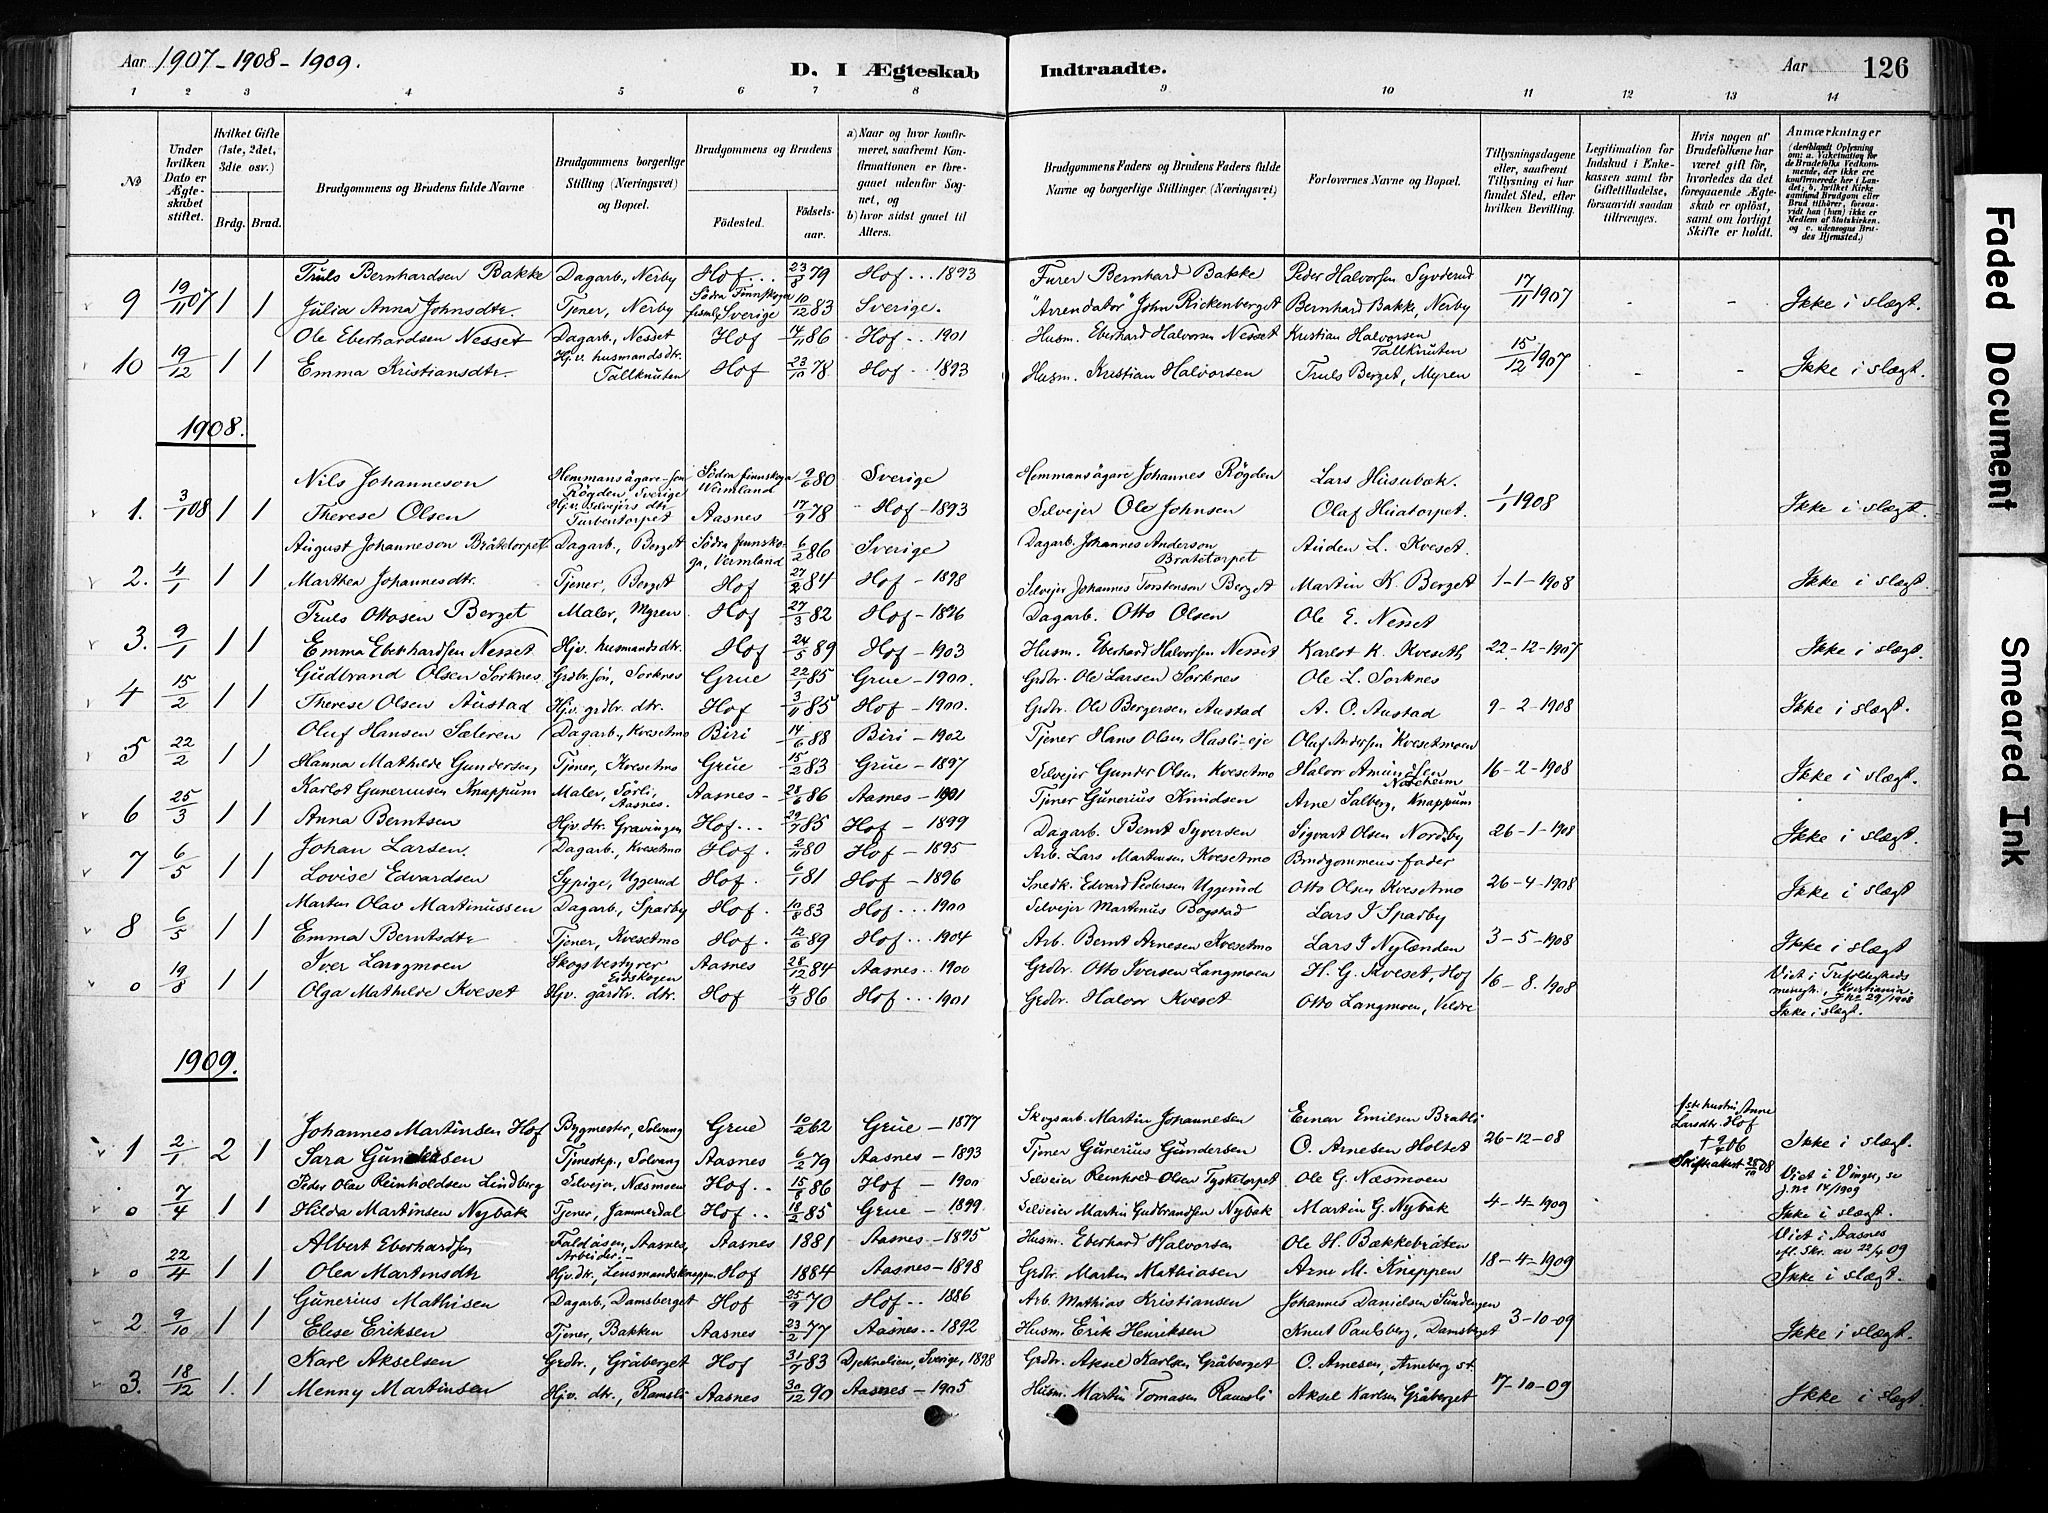 Aar 1907-1908-1909.
D. I Ægteskab Indtraadte.
Aar 126
1 2 3 4 5 6 7 8 9 10 11 12 13 14
No
Under hvilken Dato er Ægteskabet stiftet.
Hvilket Gifte (1ste, 2det, 3die osv.)
Brdg. Brud.
Brudgommens og Brudens fulde Navne
Brudgommens borgerlige Stilling (Næringsvei) og Bopæl.
Brudgommens og Brudens
Fødested. Fødselsaar.
a) Naar og hvor konfirmeret, saafremt Konfirmationen er foregaaet udenfor Sognet, og
b) hvor sidst gaaet til Alters.
Brudgommens Faders og Brudens Faders fulde Navne og borgerlige Stillinger (Næringsvei)
Forlovernes Navne og Bopæl.
Tillysningsdagene eller, saafremt Tillysning ei har fundet Sted, efter hvilken Bevilling.
Legitimation for Indskud i Enkekassen samt for Giftetilladelse, forsaavidt saadan tiltrænges.
Hvis nogen af Brudefolkene har været gift før, hvorledes da det foregaaende Ægteskab er opløst, samt om lovligt Skifte er holdt.
Anmærkninger (deriblandt Oplysning om: a. Vakcination for de Brudefolks Vedkommende, der ikke ere konfirmerede her i Landet; b. hvilket Kirkesamfund Brudgom eller Brud tilhører, forsaavidt han (hun) ikke er Medlem af Statskirken, og c. udensogns Brudes Hjemsted.)
9 19/11 07 1 1 Truls Bernhardsen Bakke Dagarb., Nerby Hof 23/8 79 Hof 1893 Furer Bernhard Bakke Peder Halvorsen Syverud 17/11 1907 - -
Julia Anna Johnsdtr. Tjener, Nerby Södra Finnskoga Sverige 10/12 83 Sverige. "Arrendator" John Rickenberget Bernhard Bakke, Nerby Ikke i slægt.
10 19/12 1 1 Ole Eberhardsen Nesset Dagarb., Nesset Hof 14/11 86 Hof 1901 Husm. Eberhard Halvorsen Nesset Kristian Halvorsen Tallknuten 15/12 1907 - -
Emma Kristiansdtr. Hjv. husmandsdtr. Tallknuten Hof 23/10 78 Hof 1893 Husm. Kristian Halvorsen Truls Berget, Myren Ikke i slægt.
1908.
1. 3/1 08 1 1 Nils Johanneson Hemmansägare-son Rögden, Sverige Södra finnskoga Wermland 9/6 80 Sverige Hemmansägare Johannes Rögden Lars Husubæk. 1/1 1908
Therese Olsen Hjv. Selveiers dtr. Turbentorpet Aasnes 17/9 78 Hof - 1893 Selvejer Ole Johnsen Olaf Huatorpet. Ikke i slægt.
2. 4/1 1 1 August Johanneson Bråtetorpet Dagarb., Berget Södra finnskoga, Vermland 6/2 86 Sverige Dagarb. Johannes Anderson Bratetorpet Auden L. Kveset.
Marthea Johannesdtr. Tjener, Berget Hof 27/2 84 Hof - 1898 Selvejer Johannes Torstenson Berget Martin K. Berget 1-1-1908 Ikke i slægt.
3. 9/1 1 1 Truls Ottosen Berget Maler, Myren Hof 27/3 82 Hof - 1896 Dagarb. Otto Olsen Ole E. Nesset
Emma Eberhardsen Nesset Hjv. husmandsdtr. Hof 24/5 89 Hof - 1903 Husm. Eberhard Halvorsen Nesset Karlot K. Kveseth 22-12-1907 Ikke i slægt.
4 15/2 1 1 Gudbrand Olsen Sorknes Grdbr. søn, Sorknes Grue 22/1 85 Grue - 1900. Grdbr. Ole Larsen Sorknes Ole L. Sorknes
Therese Olsen Austad Hjv. grdbr. dtr. Hof 3/11 85 Hof - 1900. Grdbr. Ole Bergersen Austad A. O. Austad 9-2-1908 Ikke i slægt.
5 22/2 1 1 Oluf Hansen Sæteren Dagarb., Kvesetmo Biri 14/6 88 Biri - 1902 Tjener Hans Olsen Hasli-eje Olaf Andersen Kvesetmoen
Hanna Mathilde Gundersen, Tjener, Kvesetmo Grue 15/2 83 Grue - 1897 Selvejer Gunder Olsen Kvesetmo Halvor Amundsen Norheim 16-2-1908 Ikke i slægt.
6 25/3 1 1 Karlot Guneriusen Knappum Maler, Sörli, Aasnes. Aasnes - 28/6 86 Aasnes - 1901 Tjener Gunerius Knudsen Arne Salberg, Knappum
Anna Berntsen Hjv. dtr. Gravingen Hof 29/7 85 Hof - 1899 Dagarb. Bernt Syversen Sigvart Olsen Nordsby 26-1-1908 Ikke i slægt.
7 6/5 1 1 Johan Larsen. Dagarb., Kvesetmo Hof. 2/11 80 Hof - 1895 Arb. Lars Martinsen Kvesetmo Brudgommens fader
Lovise Edvardsen Sypige, Uggerud Hof. 6/1 81 Hof - 1896 Snedk. Edvard Pedersen Uggerud Otto Olsen Kvesetmo 26-4-1908 Ikke i slægt.
8 6/5 1 1 Martin Olav Martinussen Dagarb., Sparby Hof. 10/8 83 Hof 1900 Selvejer Martinus Bogstad Lars J Sparby
Emma Berntsdtr Tjener, Kvesetmo Hof. 12/6 89 Hof 1904 Arb. Bernt Arnesen Kvesetmo Lars J Nylenden 3-5-1908 Ikke i slægt
0 19/8 1 1 Iver Langmoen Skogsbestyrer Eidskogen Aasnes 28/12 84 Aasnes 1900 Grdbr. Otto Iversen Langmoen H. G. Kveset, Hof 16-8-1908 Viet i Trefoldigheds menigh., Kristiania. J no 29/1908
Olga Mathilde Kveset Hjv. gårdbr. dtr. Hof 4/3 86 Hof 1901 Grdbr. Halvor Kveset Otto Langmoen, Veldre Ikke i slægt.
1909.
1 2/1 2 1 Johannes Martinsen Hof Bygmester, Solvang Grue 10/2 62 Grue - 1877 Skogsarb. Martin Johannesen Einar Emilsen Bratli 26-12-08 1ste hustru Anne Larsdtr. Hof † 9/4 06 Skifteattest 28/10 08
Sara Gundersen Tjenestep., Solvang Aasnes 6/2 79 Aasnes - 1893 Tjener Gunerius Gundersen O. Arnesen Holtet Ikke i slægt.
0 7/4 1 1 Peder Olav Reinholdsen Lindberg Selvejer, Næsmoen Hof 15/8 86 Hof - 1900 Selveier Reinhold Olsen Tysketorpet Ole G. Næsmoen Viet i Vinger, se J. no 14/1909
Hilda Martinsen Nybak Tjener, Jammerdal Hof 18/2 85 Grue - 1899. Selveier Martin Gudbrandsen Nybak Martin G. Nybak 4-4-1909 Ikke i slægt.
0 22/4 1 1 Albert Eberhardsen Faldåsen, Aasnes, Arbeider. Aasnes 1881 Aasnes - 1895 Husm. Eberhard Halvorsen Ole H. Bækkebråten Viet i Aasnes efl. Skr. av 22/4 09
Olea Martinsdtr Hjv. dtr., Lensmandsknappen Hof 1884 Aasnes - 1898 Grdbr. Martin Mathiasen Arne M. Knappen 18-4-1909 Ikke i slægt.
2. 9/10 1 1 Gunerius Mathisen Dagarb., Damsberget Hof 25/9 70 Hof 1886 Arb. Mathias Kristiansen Johannes Danielsen Sundengen
Elise Eriksen Tjener, Bakken Aasnes 23/2 77 Aasnes 1892 Husm. Erik Henriksen Knut Paulsberg, Damsberget 3-10-09 Ikke i slægt.
3. 18/12 1. 1 Karl Akselsen Grdbr., Gråberget Hof 31/7 83 Djeknelien, Sverige, 1898 Grdbr. Aksel Karlsen Gråberget O. Arnesen, Arneberg st.
Menny Martinsen Hjv. dtr., Ramsli Aasnes 30/12 90 Aasnes - 1905 Husm. Martin Tomasen Ramsli Aksel Karlsen Gråberget 7-10-09 Ikke i slægt.
Faded Document
Smeared Ink